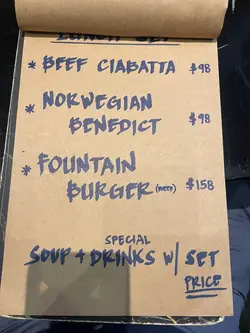 LUNCH SET
* BEEF CIABATTA $98
* NORWEGIAN
BENEDICT $98
* FOUNTAIN
BURGER (BEEF) $158
SPECIAL
SOUP + DRINKS W/ SET
PRICE